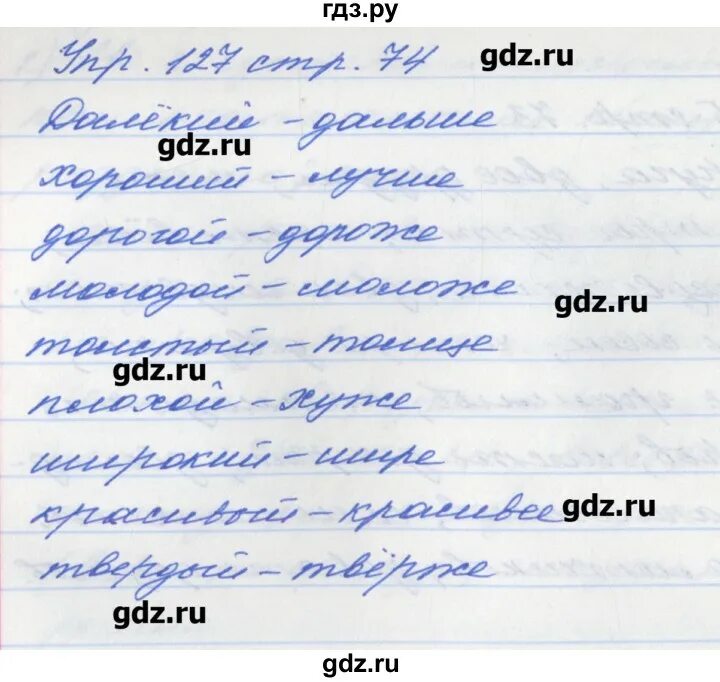 гдз.ру
Упр. 127 стр. 74
gdz.ru
Далёкий – дальше
gdz.ru
хороший – лучше
дорогой – дороже
молодой – моложе
gdz.ru
толстый – толще
gdz.ru
плохой – хуже
широкий – шире
красивый – красивее
gdz.ru
твердый – твёрже
gdz.ru
gdz.ru